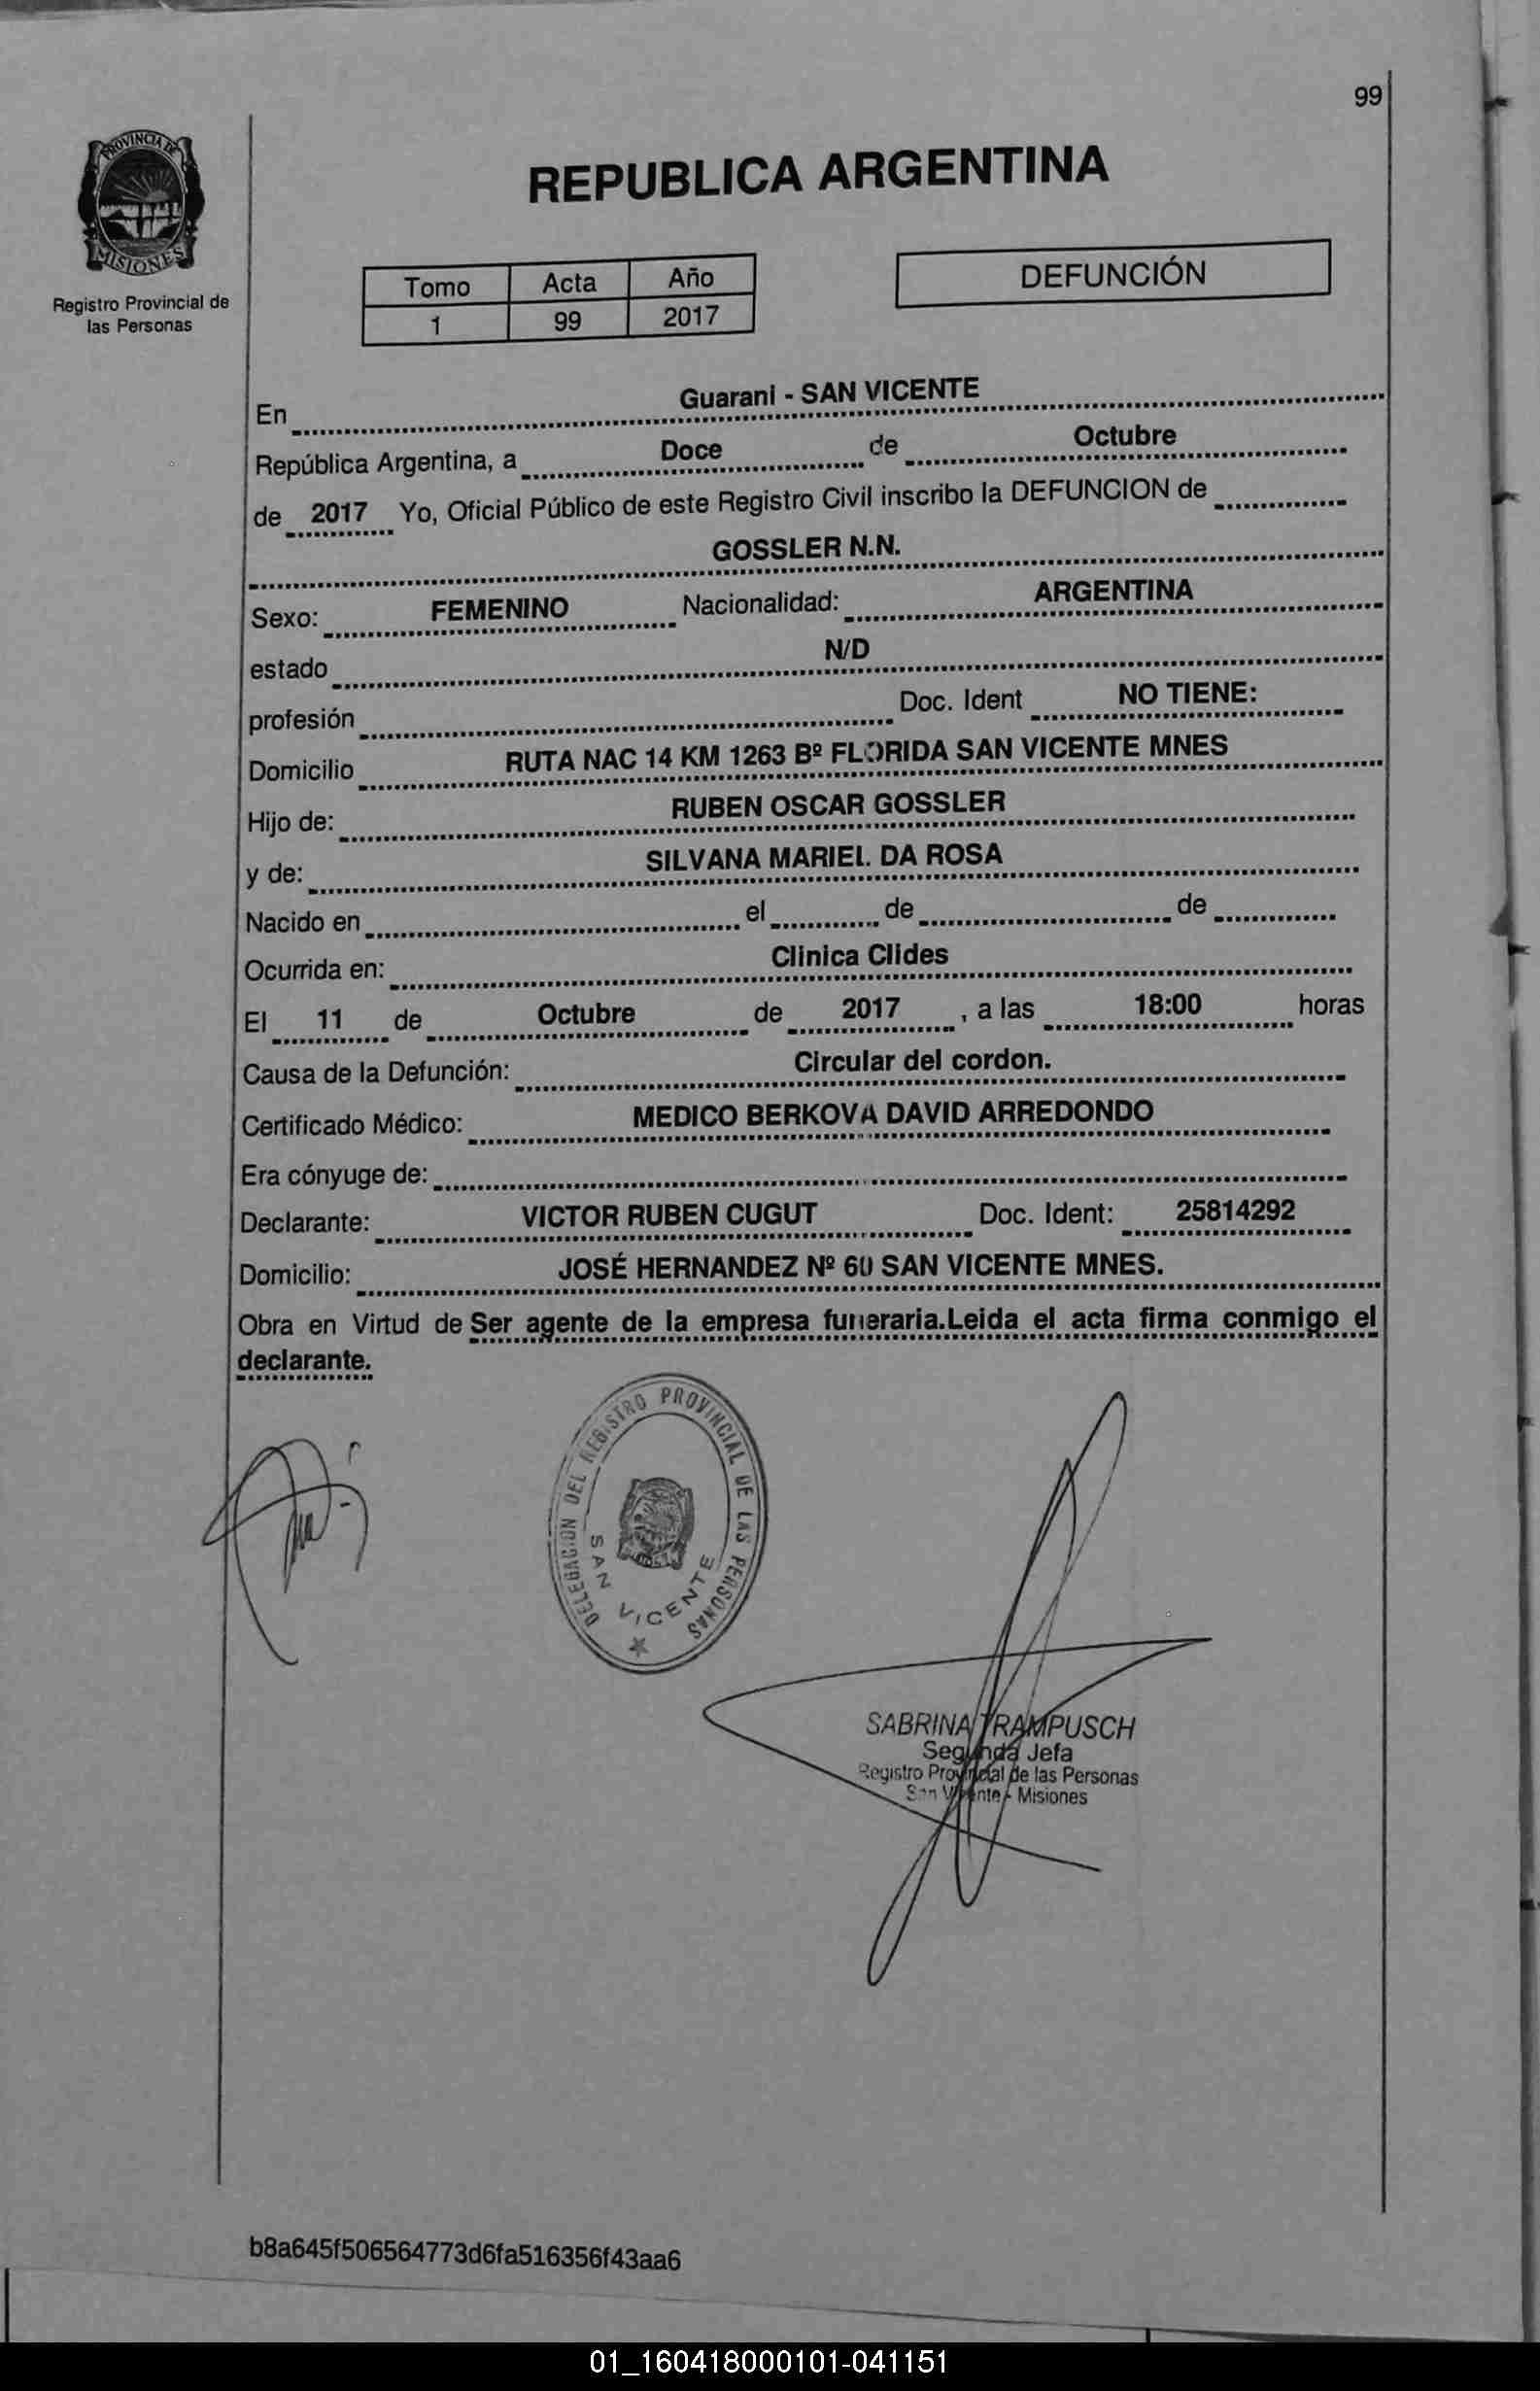 99
PROVINCIA DE
MISIONES
Registro Provincial de
las Personas
REPUBLICA ARGENTINA
Tomo Acta Año
1 99 2017
DEFUNCIÓN
En Guarani - SAN VICENTE
República Argentina, a Doce de Octubre
de 2017 Yo, Oficial Público de este Registro Civil inscribo la DEFUNCION de
GOSSLER N.N.
Sexo: FEMENINO Nacionalidad: ARGENTINA
estado N/D
profesión Doc. Ident NO TIENE:
Domicilio RUTA NAC 14 KM 1263 Bº FLORIDA SAN VICENTE MNES
Hijo de: RUBEN OSCAR GOSSLER
y de: SILVANA MARIEL DA ROSA
Nacido en el de de
Ocurrida en: Clinica Clides
El 11 de Octubre de 2017 , a las 18:00 horas
Causa de la Defunción: Circular del cordon.
Certificado Médico: MEDICO BERKOVA DAVID ARREDONDO
Era cónyuge de:
Declarante: VICTOR RUBEN CUGUT Doc. Ident: 25814292
Domicilio: JOSÉ HERNANDEZ Nº 60 SAN VICENTE MNES.
Obra en Virtud de Ser agente de la empresa funeraria.Leida el acta firma conmigo el
declarante.
DELEGACION DEL REGISTRO PROVINCIAL DE LAS PERSONAS
SAN VICENTE
SABRINA TRAMPUSCH
Segunda Jefa
Registro Provincial de las Personas
San Vicente - Misiones
b8a645f506564773d6fa516356f43aa6
01_160418000101-041151